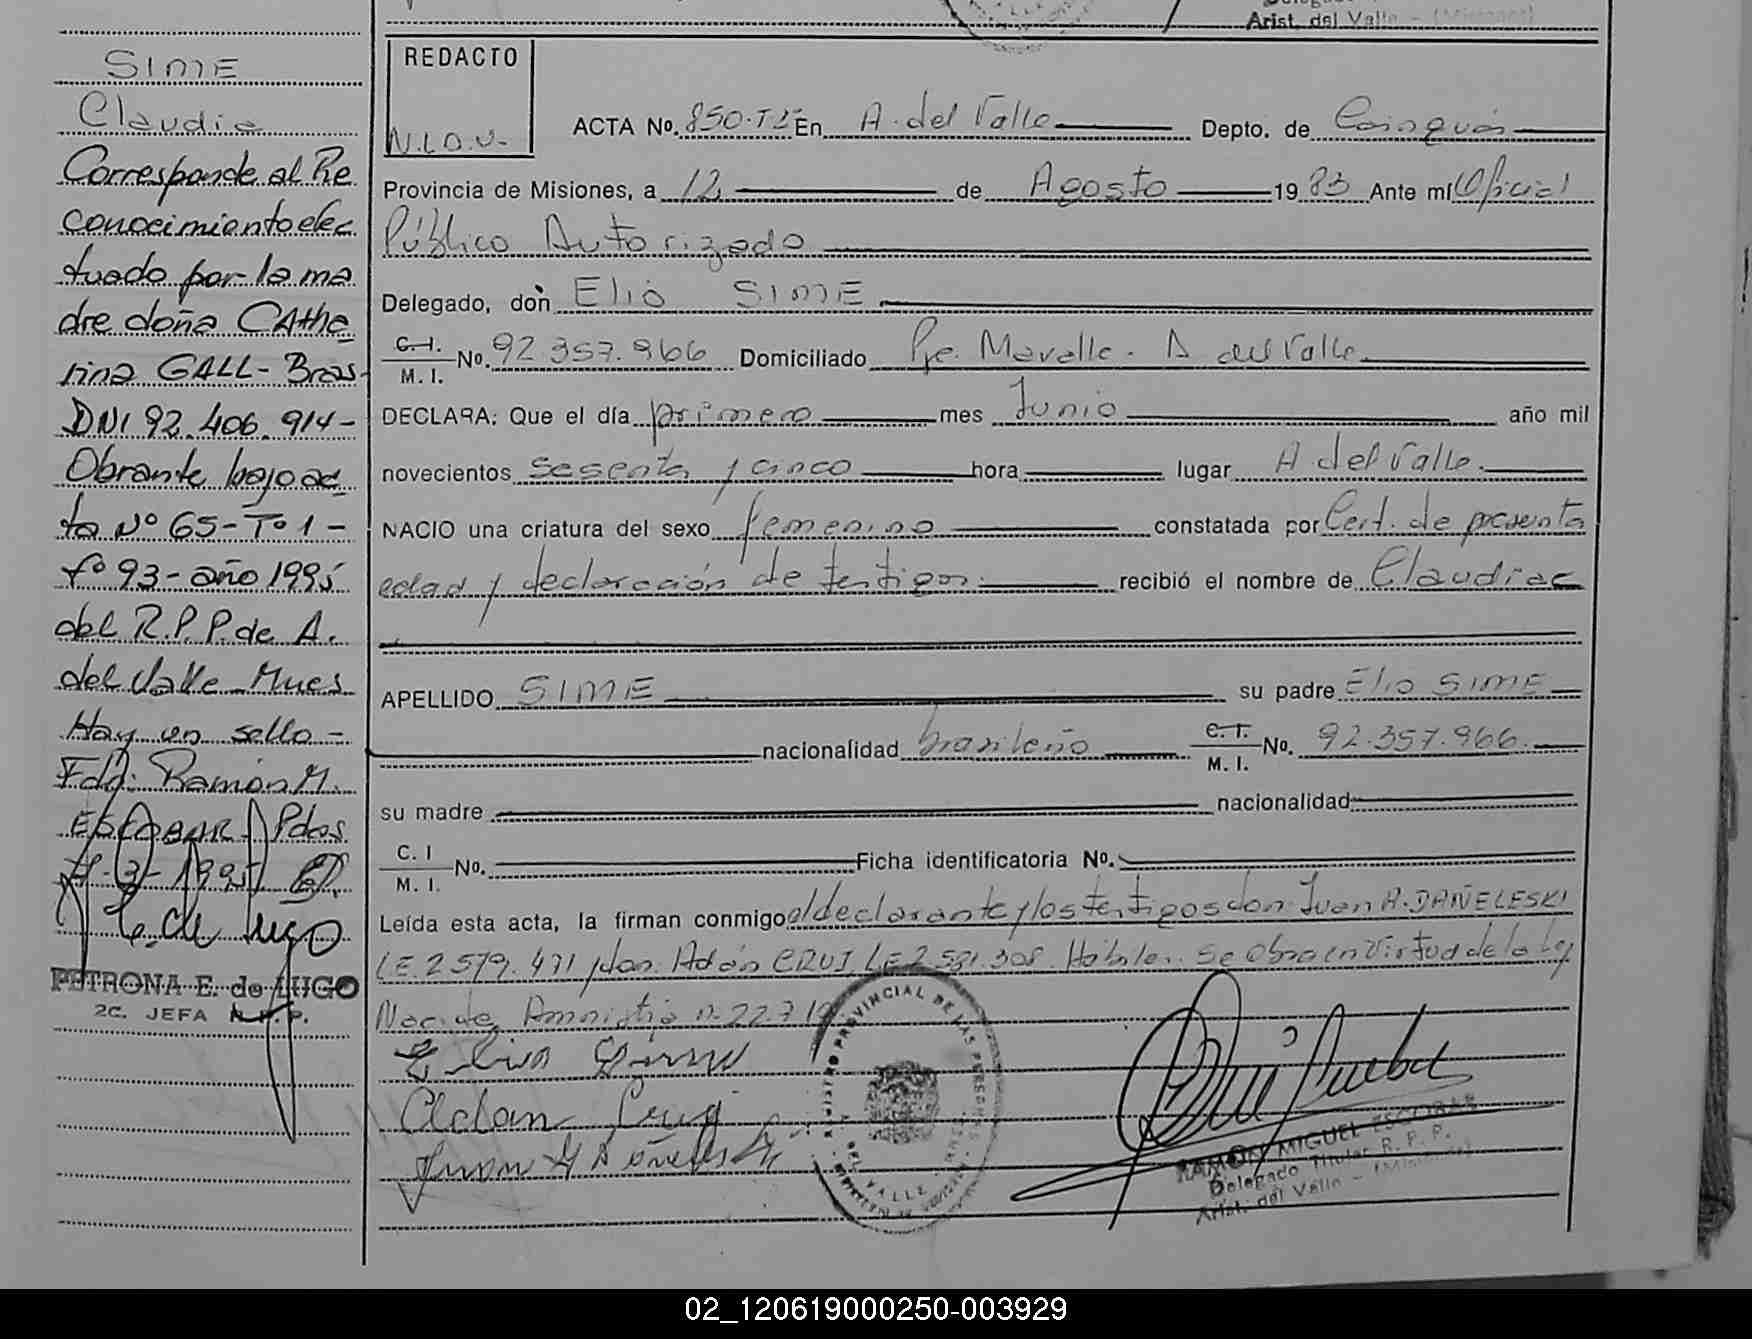 Arist. del Valle - (Misiones)
SIME
Claudia
Corresponde al Re
conocimiento efec
tuado por la ma
dre doña CAtha
rina GALL - Bras-
DNI 92.406.914-
Obrante bajo ac
ta Nº 65 - Tº 1 -
fº 93 - año 1995
del R.P.P. de A.
del Valle Mnes
Hay un sello -
Fdo: Ramón M.
ESCOBAR Pdos
-3-1995
PETRONA E. de LUGO
2C. JEFA R.P.P.
REDACTO
N.L.O.V.-
ACTA No. 850-T2º En A. del Valle Depto. de Cainguás
Provincia de Misiones, a 12 de Agosto 1983 Ante mí Oficial
Público Autorizado
Delegado, don Elio SIME
C. I. M. I. No. 92.357.966 Domiciliado Pje. Mavalle - A del Valle.
DECLARA: Que el día primero mes Junio año mil
novecientos sesenta y cinco hora lugar A del Valle.
NACIO una criatura del sexo femenino constatada por Cert. de presunta
edad y declaración de testigos. recibió el nombre de Claudia
APELLIDO SIME su padre Elio SIME
nacionalidad brasileño C. I. M. I. No. 92.357.966.
su madre nacionalidad
C. I M. I. No. Ficha identificatoria No.
Leída esta acta, la firman conmigo el declarante y los testigos don: Juan A. DAÑELESKI
LE. 2 579. 471 y don: Adán CRUZ LE 2 581.308. Hábiles. Se obra en Virtud de la Ley
Nac. de Amnistía n. 22.719
Adan Cruz
Juan A Dañeleski
REGISTRO PROVINCIAL DE LAS PERSONAS
DEL VALLE
RAMON MIGUEL ESCOBAR
Delegado Titular R. P. P.
Arist. del Valle - (Misiones)
02_120619000250-003929